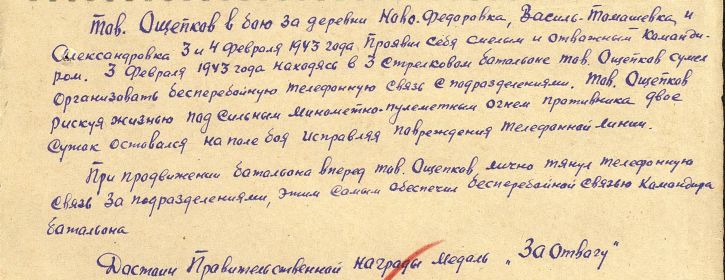 Тов. Ощепков в бою за деревни Ново-Федоровка, Василь-Томашевка, и
Александровка 3 и 4 Февраля 1943 года Проявил Себя смелым и отважным Команди-
ром. 3 Февраля 1943 года находясь в 3 Стрелковом батальоне тов. Ощепков сумел
Организовать бесперебойную телефонную связь с подразделениями. Тов. Ощепков
рискуя жизнью под сильным минометно-пулеметным огнем противника двое
суток оставался на поле боя исправляя повреждения телефонной линии.
При продвижении батальона вперед тов. Ощепков, лично тянул телефонную
связь за подразделениями, этим самым обеспечил бесперебойной связью Командира
батальона
Достоин Правительственной награды медаль „За Отвагу"